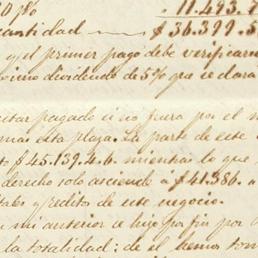 0 p%  11.493.7
cantidad $ 36.399.5
y el primer pago debe verificarse
dividendo de 5% que se clara
pagado ii no fuera por el m
mas esta plaza. La parte de este
to $ 45.139.4.6. mientras lo que
derecho solo asciende á $ 41.386. a
tales y reditos de este negocio.
mi anterior se hizo por fin por
la totalidad: de el hemos tom